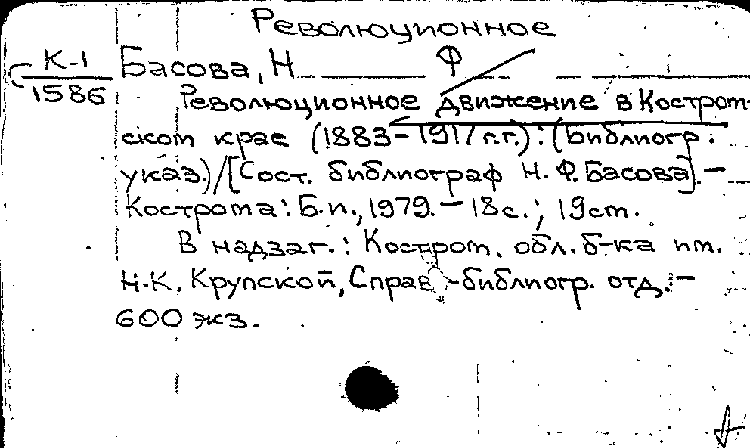 Революционное
К-1
1586
Басова, Н Ф
Революционное движение в Костром-
ском крае (1883-1917 г.г.): (Библиогр.
указ.)/[Сост. библиограф Н. Ф. Басова]. -
Кострома: Б.и., 1979. - 18 с.; 19 cm.
В надзаг.: Костром. обл. б-ка им.
Н.К. Крупской, Справ.-библиогр. отд. -
600 экз.